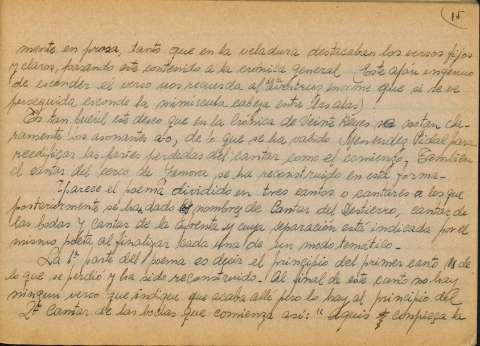 15
mente en prosa, tanto que en la veladura destacaban los versos fijos
y claros, pasando este contenido a la crónica general (Este afán ingenuo
de esconder el verso nos recuerda al avestruz enorme que si se ve
perseguida esconde la minúscula cabeza entre las alas)
Es tan pueril este deseo que en la Crónica de Veinte Reyes se notan cla-
ramente los asonantes a-o, de lo que se ha valido Menendez Pidal para
reedificar las partes perdidas del cantar como el comienzo, También
el cantar del cerco de Zamora, se ha reconstruido en esta forma-
Aparece el poema dividido en tres cantos o cantares a los que
posteriormente se ha dado el nombre de Cantar del Destierro, cantar de
las bodas y Cantar de la Afrenta y cuya separación está indicada por el
mismo poeta al finalizar cada una de un modo temático-
La 1ª parte del poema es decir el principio del primer canto es de
lo que se perdió y ha sido reconstruido. Al final de este canto no hay
ningun verso que indique que acaba allí pero lo hay al principio del
2º Cantar de las bodas que comienza así: "Aquis conpieça la